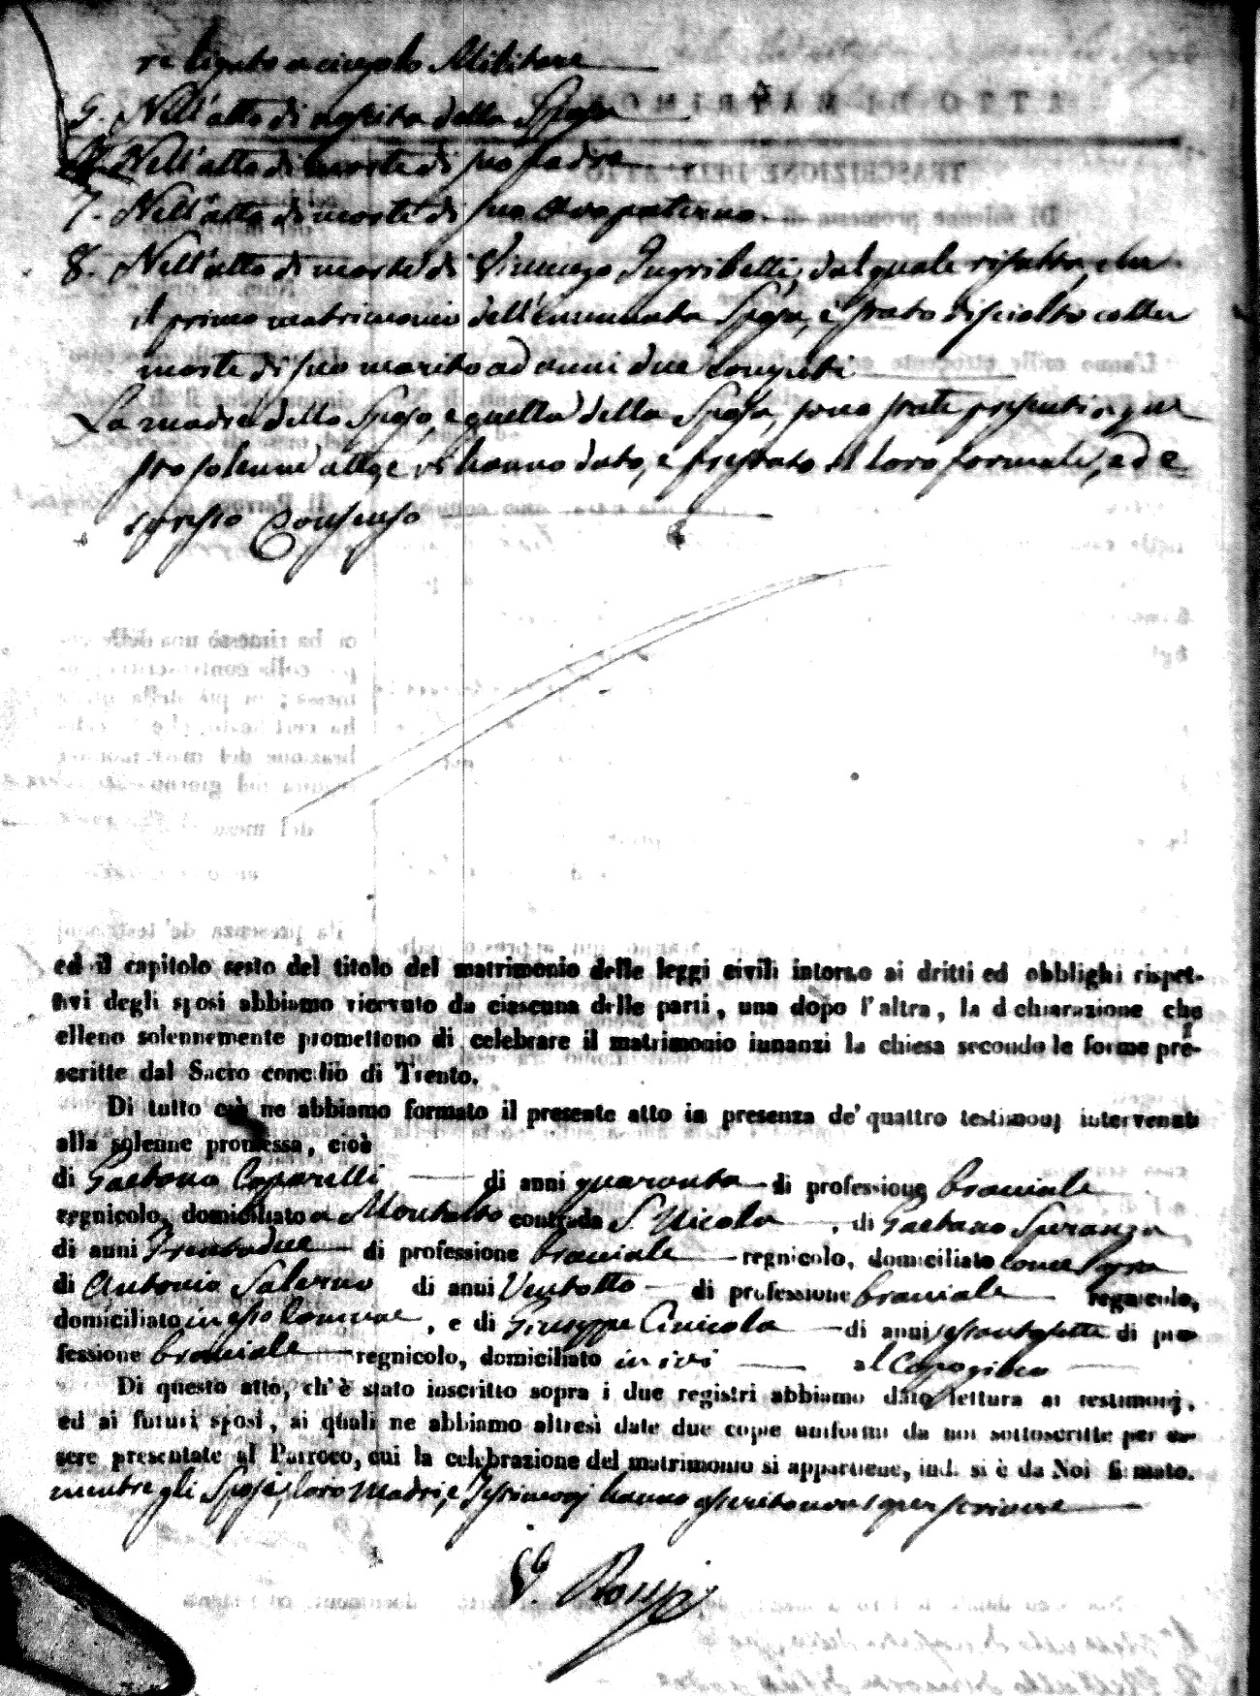 legato a cingolo Militare
5. Nell'atto di nascita della Sposa
6. Nell'atto di morte di suo padre
7. Nell'atto di morte di suo avo paterno
8. Nell'atto di morte di Vincenzo dal quale risulta, che
il primo matrimonio dell'enunciata Sposa, è stato disciolto colla
morte di suo marito ad anni due compiti
La madre dello Sposo, e quella della Sposa, sono state presenti a que
sto solenne atto, e vi hanno dato, e prestato il loro formale, ed e
spresso Consenso
ed il capitolo sesto del titolo del matrimonio delle leggi civili intorno ai dritti ed obblighi rispet-
tivi degli sposi abbiamo ricevuto da ciascuna delle parti, una dopo l'altra, la dichiarazione che
elleno solennemente promettono di celebrare il matrimonio innanzi la chiesa secondo le forme pre-
scritte dal Sacro concilio di Trento.
Di tutto ciò ne abbiamo formato il presente atto in presenza de' quattro testimonj intervenuti
alla solenne promessa, cioè
di Gaetano Caparelli di anni quaranta di professione bracciale
regnicolo, domiciliato a Montalto contrada S. Nicola, di Gaetano Speranza
di anni Trentadue di professione bracciale regnicolo, domiciliato come sopra
di Antonio Salerno di anni Ventotto di professione bracciale regnicolo,
domiciliato in esso Comune, e di Giuseppe di anni sessantasette di pro
fessione bracciale regnicolo, domiciliato in ivi al Capo
Di questo atto, ch'è stato inscritto sopra i due registri abbiamo dato lettura ai testimonj,
ed ai futuri sposi, ai quali ne abbiamo altresì date due copie uniformi da noi sottoscritte per es-
sere presentate al Parroco, cui la celebrazione del matrimonio si appartiene, indi si è da Noi firmato.
mentre gli Sposi, loro Madri, e Testimonj hanno asserito non saper scrivere